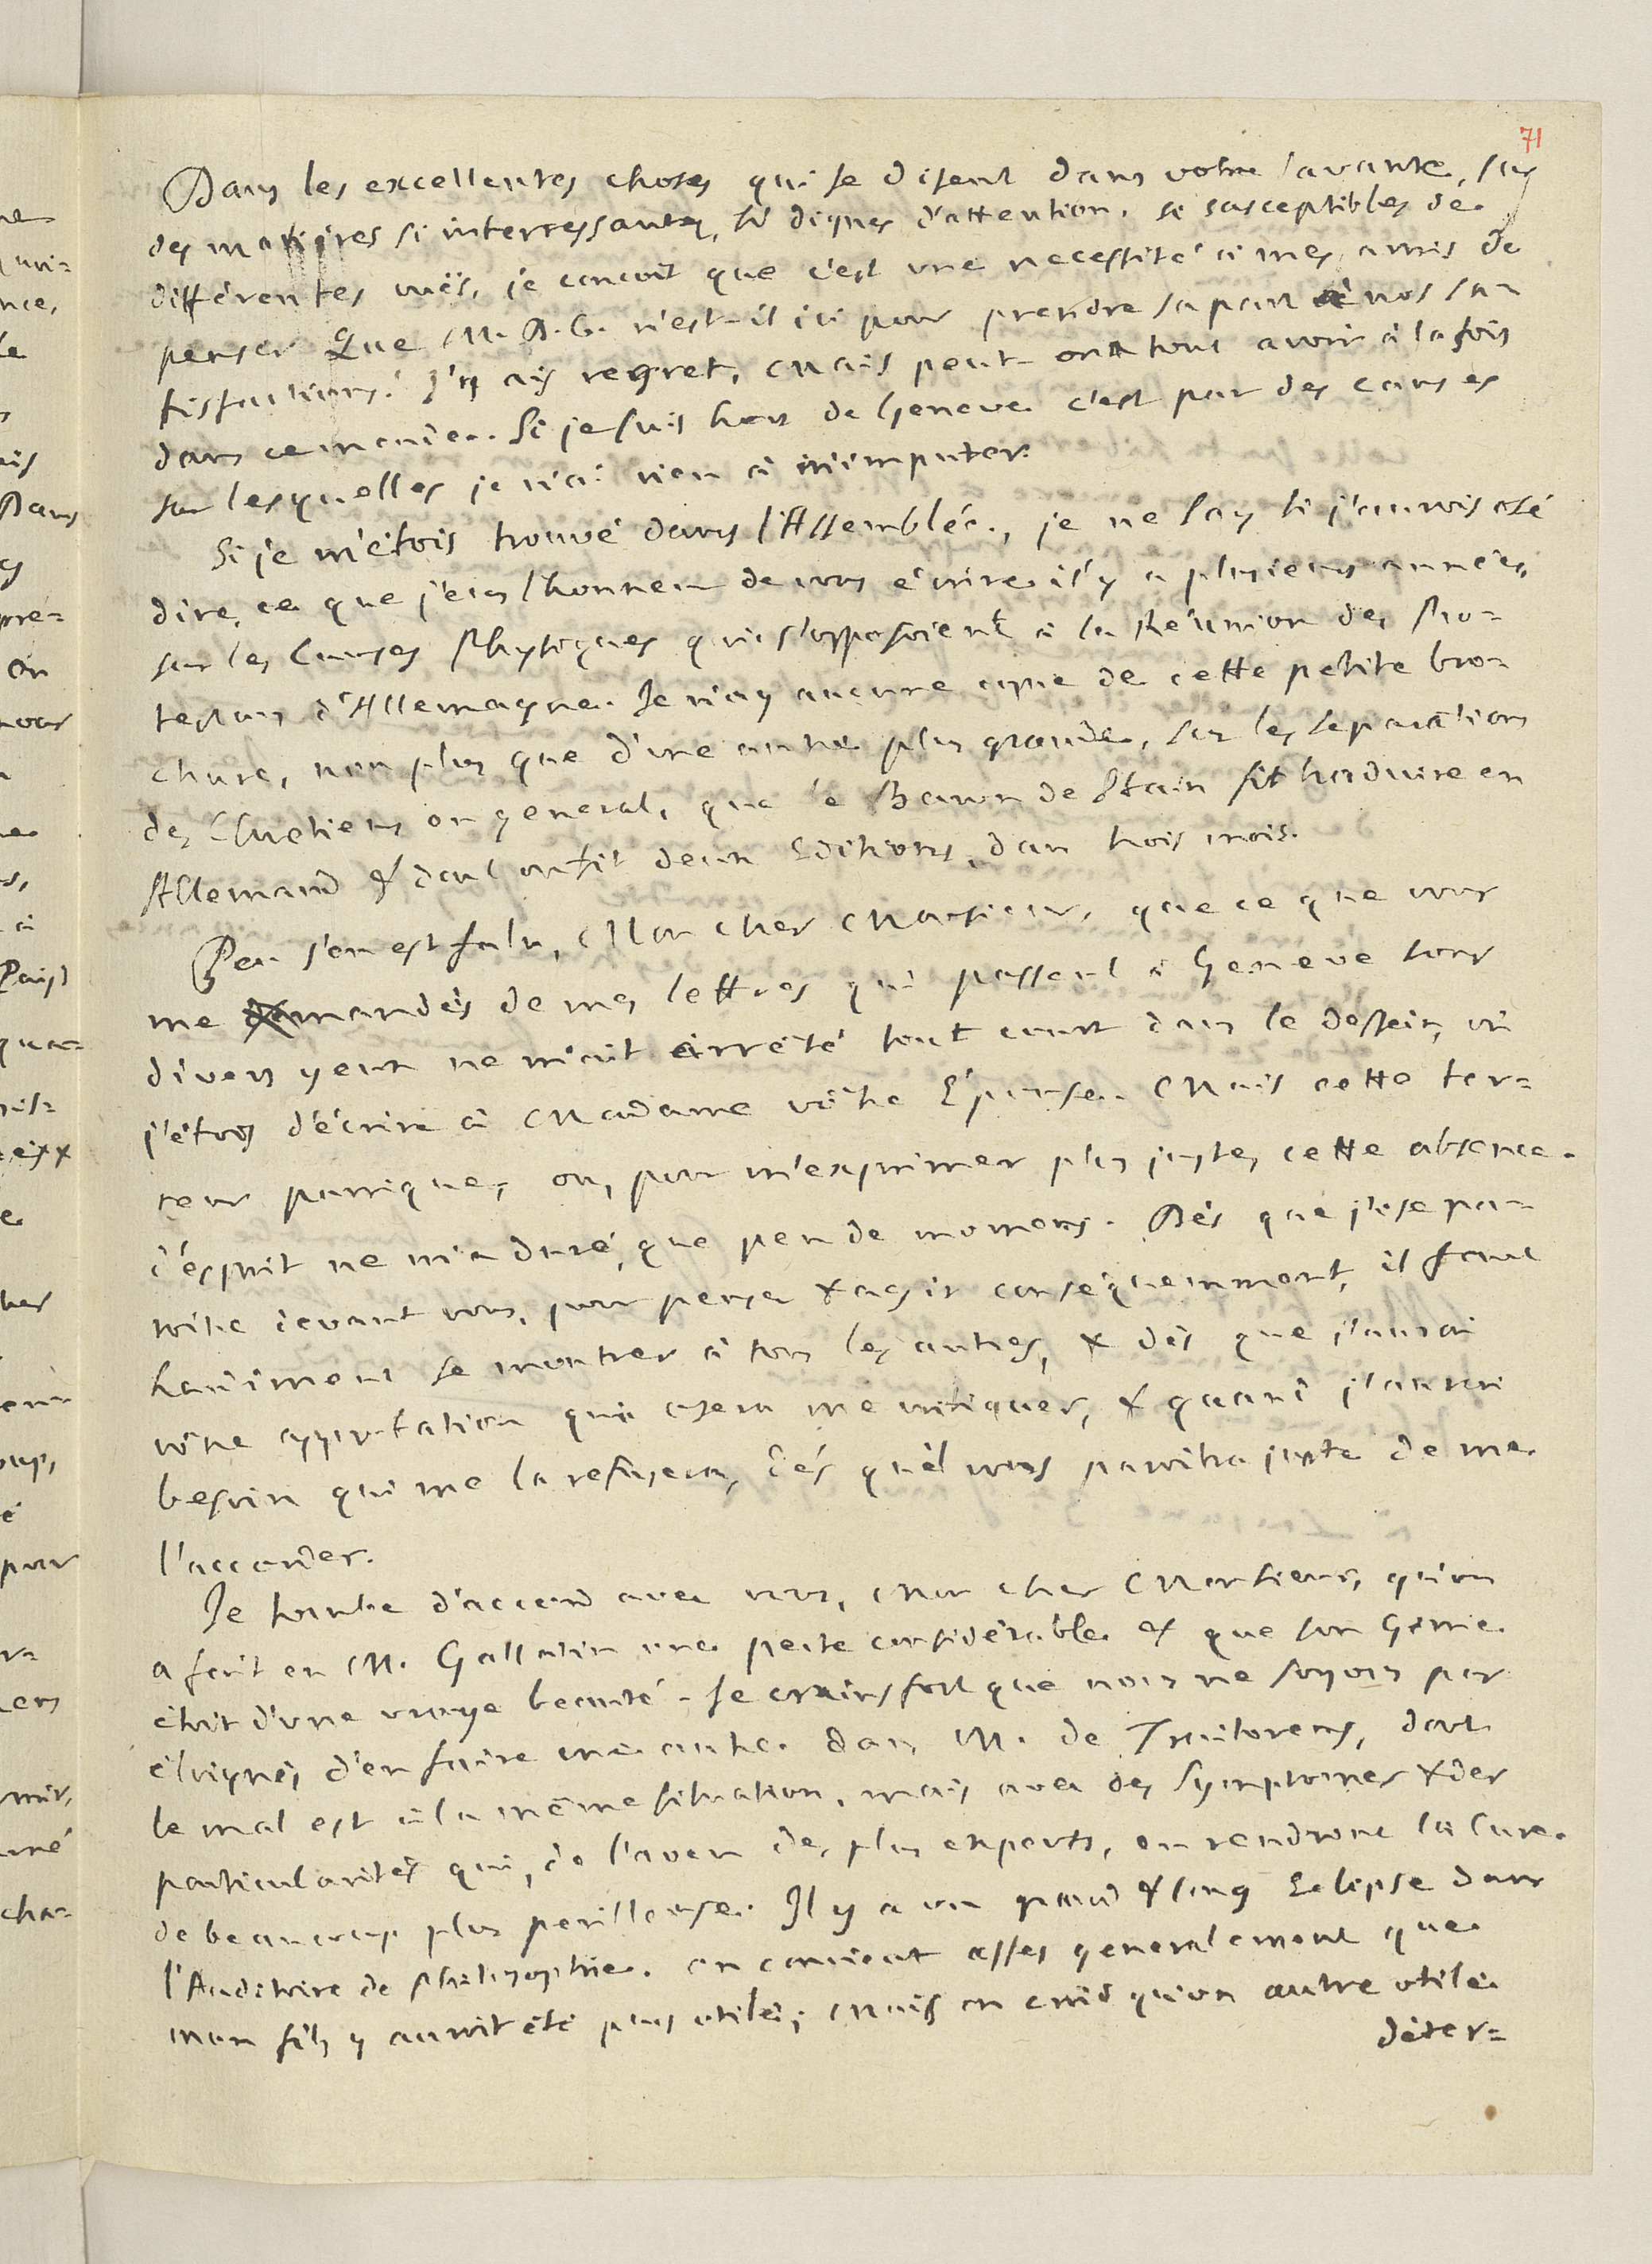 71
Dans les excellentes choses qui se disent dans votre savante, sur
des matières si interressantes, si dignes d'attention, si susceptibles de
différentes vuës, je conçoit que c'est une necessité à mes amis de
penser Que M. D. C. n'est-il ici pour prendre sa part à nos sa-
tisfactions! J'y ais regret, Mais peut-on tout avoir à la fois
dans ce monde. Si je suis hors de Geneve c'est par des causes
sur lesquelles je n'ai rien à m'imputer.
Si je m'étois trouvé dans l'Assemblée, je ne say si j'aurois osé
dire, ce que j'eus l'honneur de vous écrire il y a plusieurs années,
sur les Causes Physiques qui s'opposoient à la Réunion des Pro-
testans d'Allemagne. Je n'ay aucune copie de cette petite bro-
chure, non plus que d'une autre plus grande, sur les separations
des Chretiens en general, que le Baron de Stain fit traduire en
Allemand & dont on fit deux Editions, dan trois mois.
Peu s'en est falu, Mon cher Monsieur, que ce que vous
me mandés de mes lettres qui passent à Geneve sous
divers yeux ne m'ait arrêté tout court dans le dessein, où
j'étois d'écrire à Madame vôtre Epouse. Mais cette ter-
reur panique, ou, pour m'exprimer plus juste, cette absence
d'ésprit ne m'a duré, que peu de momens. Dès que j'ose pa-
roitre devant vous, pour penser & agir conséquemment, il faut
hardiment se montrer à tous les autres, & dès que j'aurai
vôtre approbation qui osera me critiquer, & quand j'aurai
besoin qui me la refusera, dés qu'il vous paroitra juste de me
l'accorder.
Je tombe d'accord avec vous, Mon cher Monsieur, qu'on
a fait en M. Gallatin une perte considérable & que son Genie
étoit d'une vraye beauté. Je crains fort que nous ne soyons pas
éloignés d'en faire une autre dans M. de Treitorens, dont
le mal est à la même situation, mais avec des symptomes & des
particularités qui, de l'aveu des plus experts, en rendront la Cure
de beaucoup plus perilleuse. Il y a un grand & long Eclipse dans
l'Auditoire de Philosophie. on convient assés generalement que
mon fils y auroit été plus utile; Mais on croid qu'un autre utile
déter=